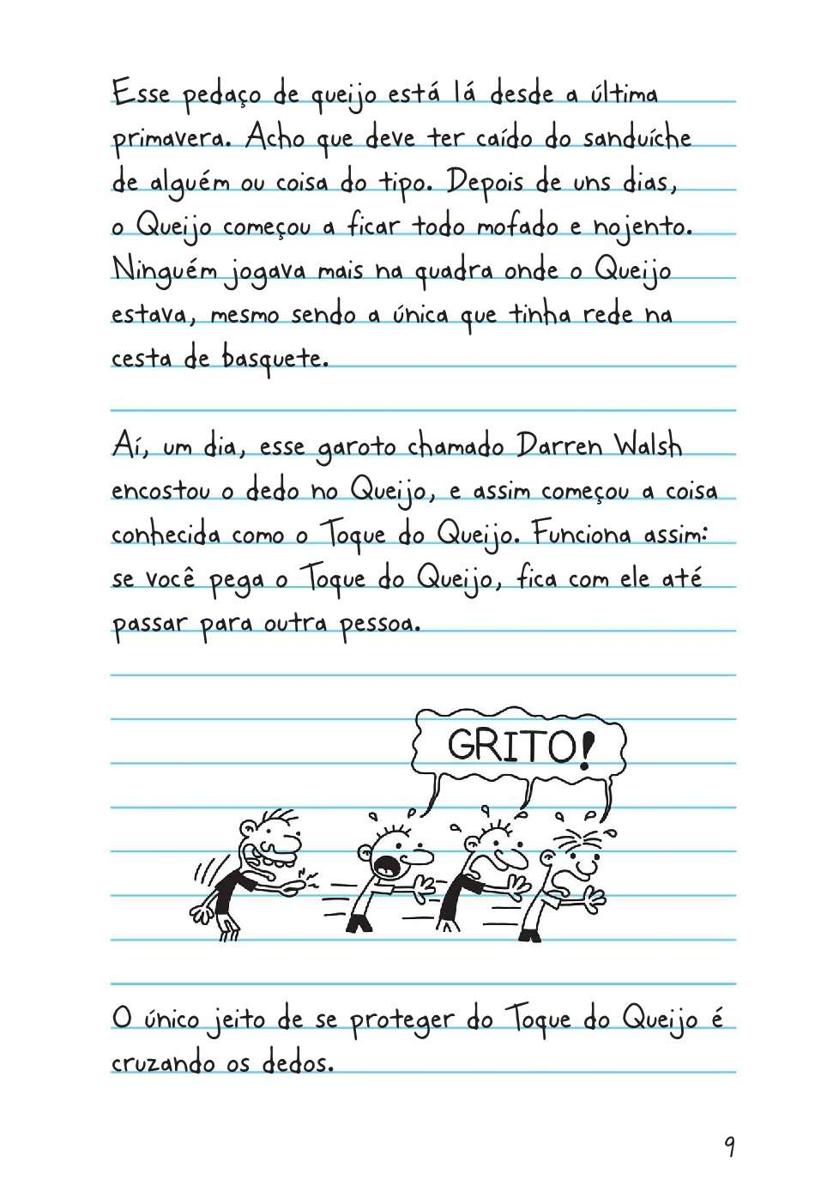 Esse pedaço de queijo está lá desde a última
primavera. Acho que deve ter caído do sanduíche
de alguém ou coisa do tipo. Depois de uns dias,
o Queijo começou a ficar todo mofado e nojento.
Ninguém jogava mais na quadra onde o Queijo
estava, mesmo sendo a única que tinha rede na
cesta de basquete.
Aí, um dia, esse garoto chamado Darren Walsh
encostou o dedo no Queijo, e assim começou a coisa
conhecida como o Toque do Queijo. Funciona assim:
se você pega o Toque do Queijo, fica com ele até
passar para outra pessoa.
GRITO!
O único jeito de se proteger do Toque do Queijo é
cruzando os dedos.
9